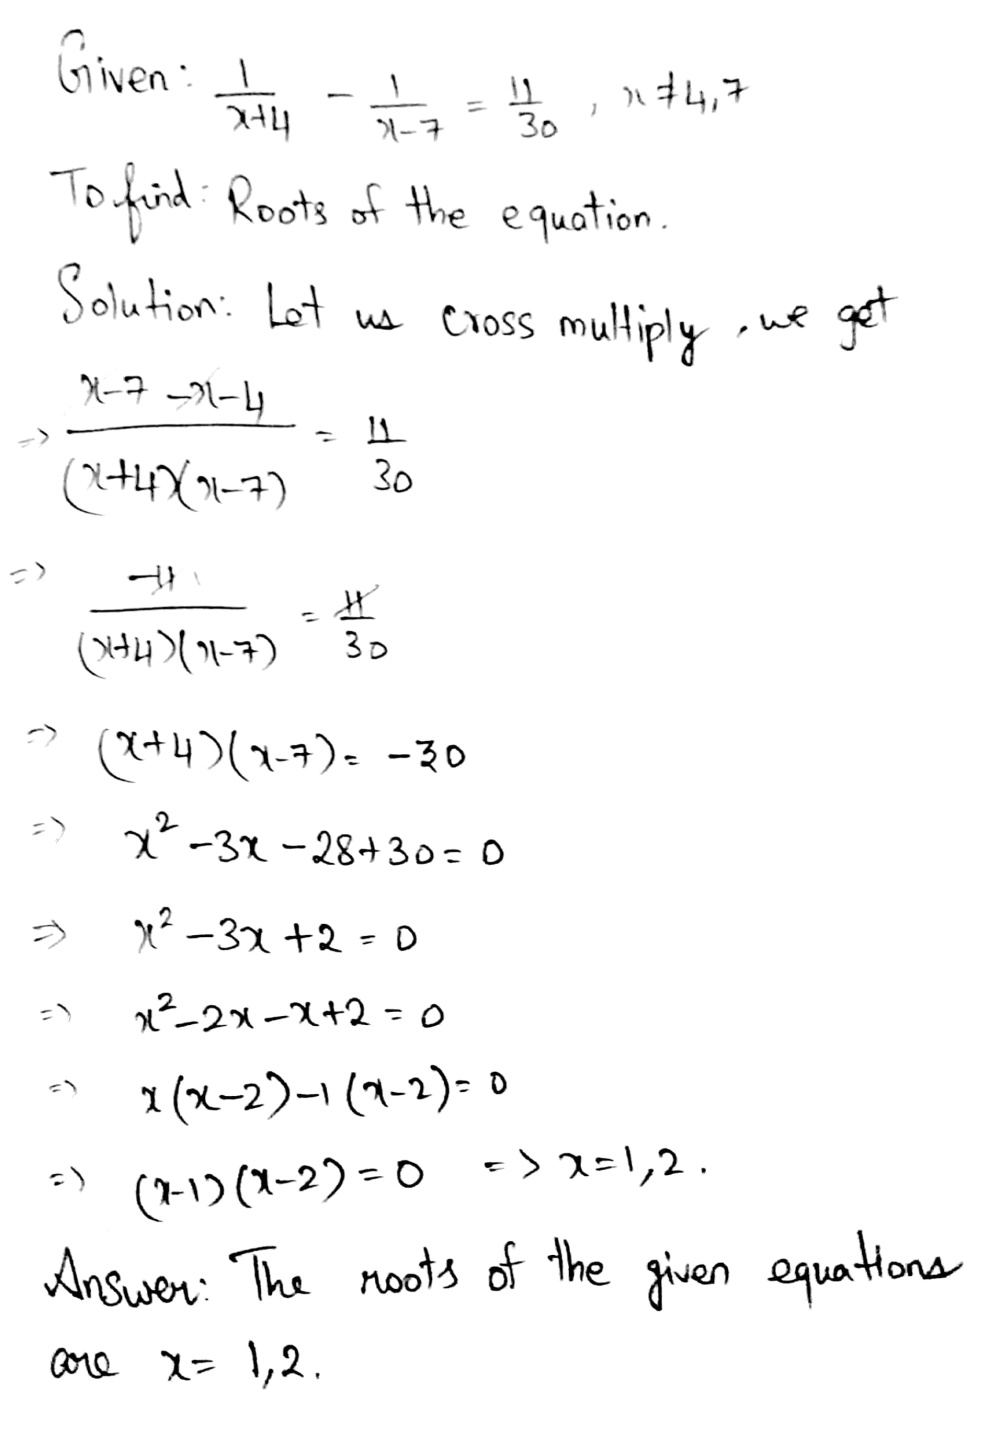 Given: 1/(x+4) - 1/(x-7) = 11/30 , x ≠ 4,7
To find: Roots of the equation.
Solution: Let us cross multiply, we get
=> (x-7 -x-4)/((x+4)(x-7)) = 11/30
=> -11/((x+4)(x-7)) = 11/30
=> (x+4)(x-7) = -30
=> x² -3x -28+30 = 0
=> x² -3x +2 = 0
=> x² -2x -x+2 = 0
=> x(x-2) -1(x-2) = 0
=> (x-1)(x-2) = 0 => x=1,2.
Answer: The roots of the given equations
are x= 1,2.